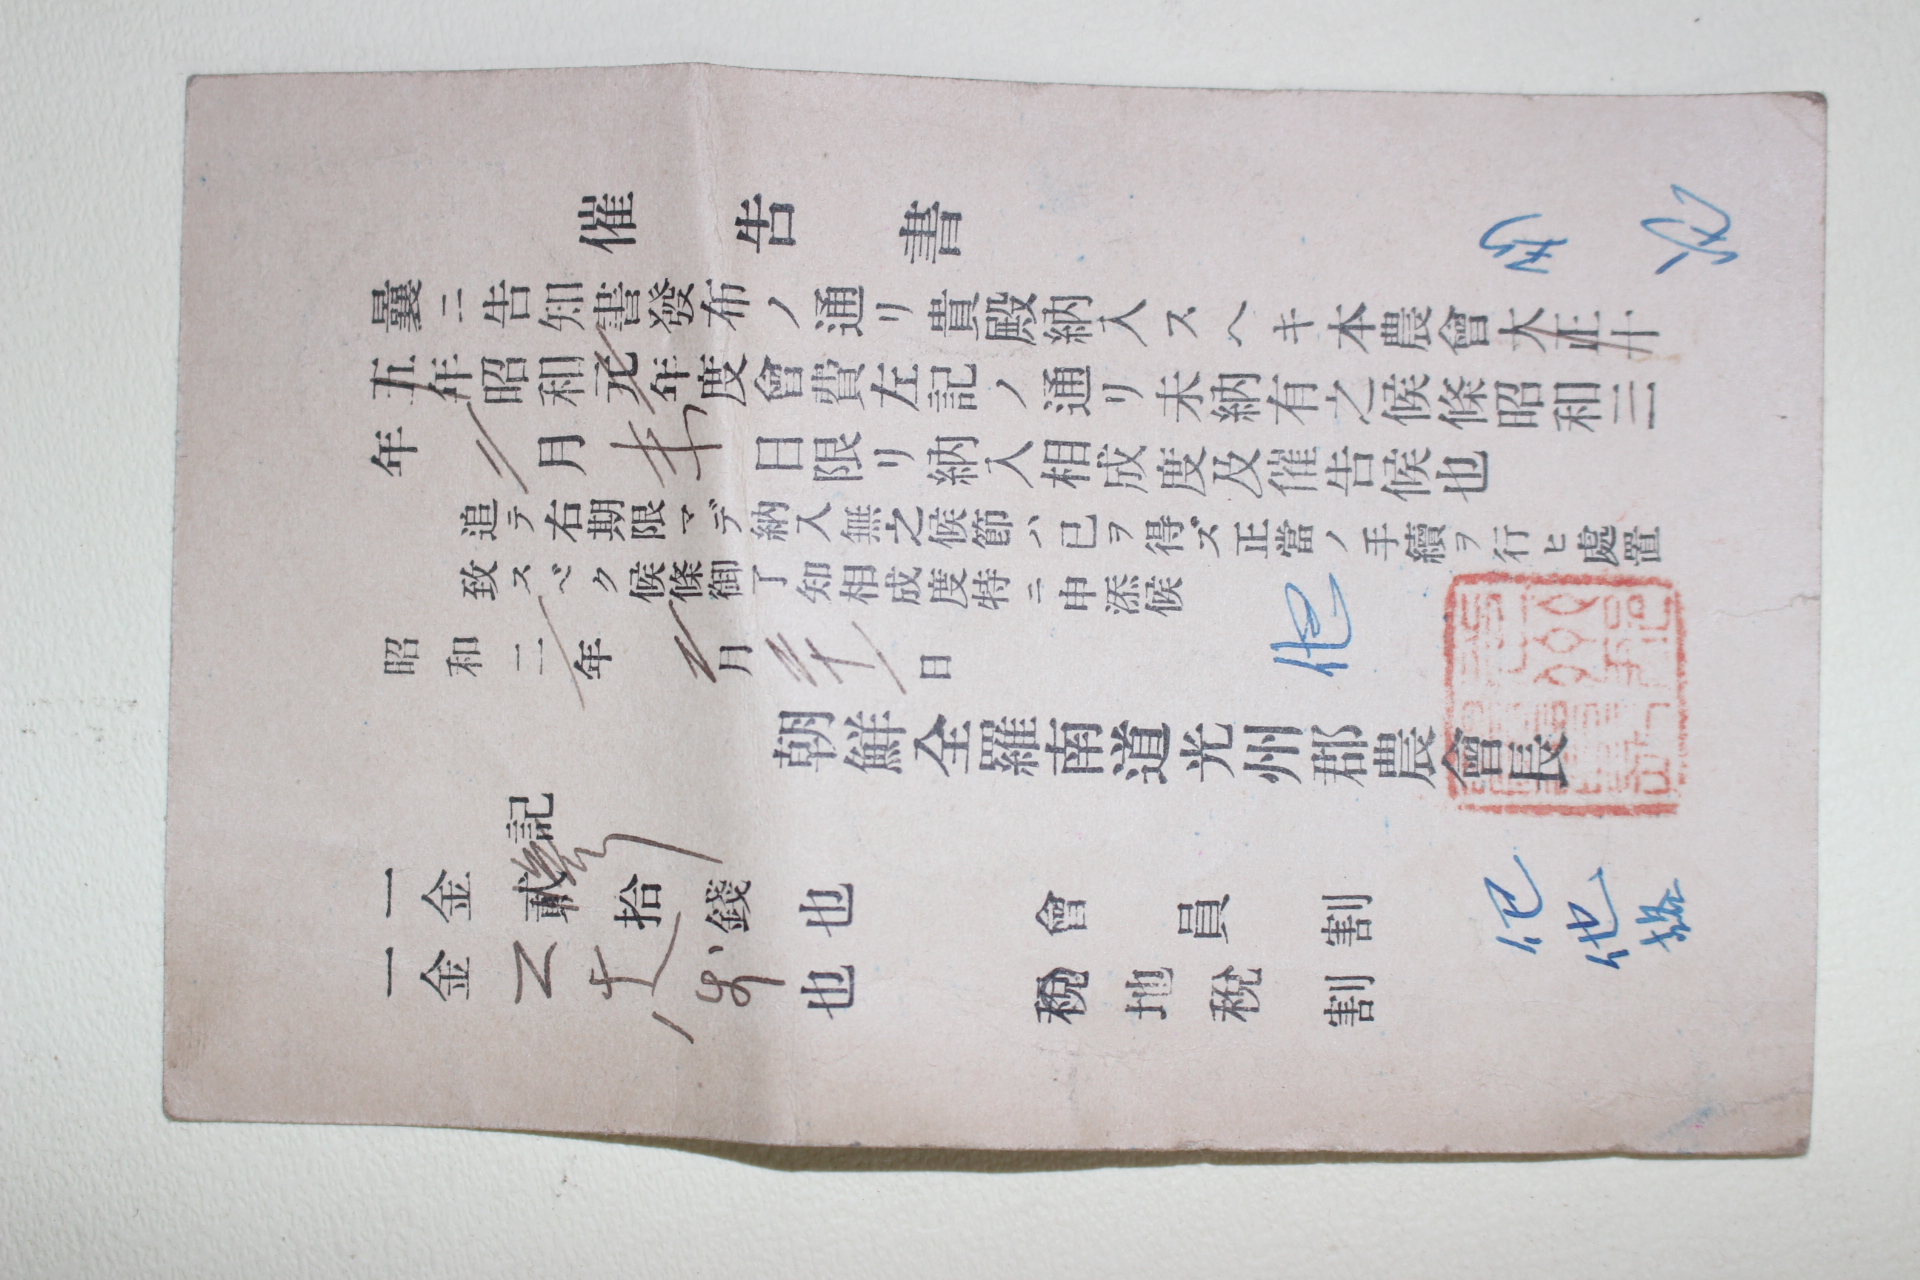 催告書
曩ニ告知書發布ノ通リ貴殿納入スヘキ本農會大正十
五年昭和元年度會費左記ノ通リ未納有之候條昭和二
年 二月 末日限リ納入相成度及催告候也
追テ右期限マデ納入無之候節ハ已ヲ得ズ正當ノ手續ヲ行ヒ處置
致スベク候條御了知相成度特ニ申添候
昭和二年 二月 日
朝鮮全羅南道光州郡農會長
記
一金貳拾錢也 會員割
一金 也 地稅割